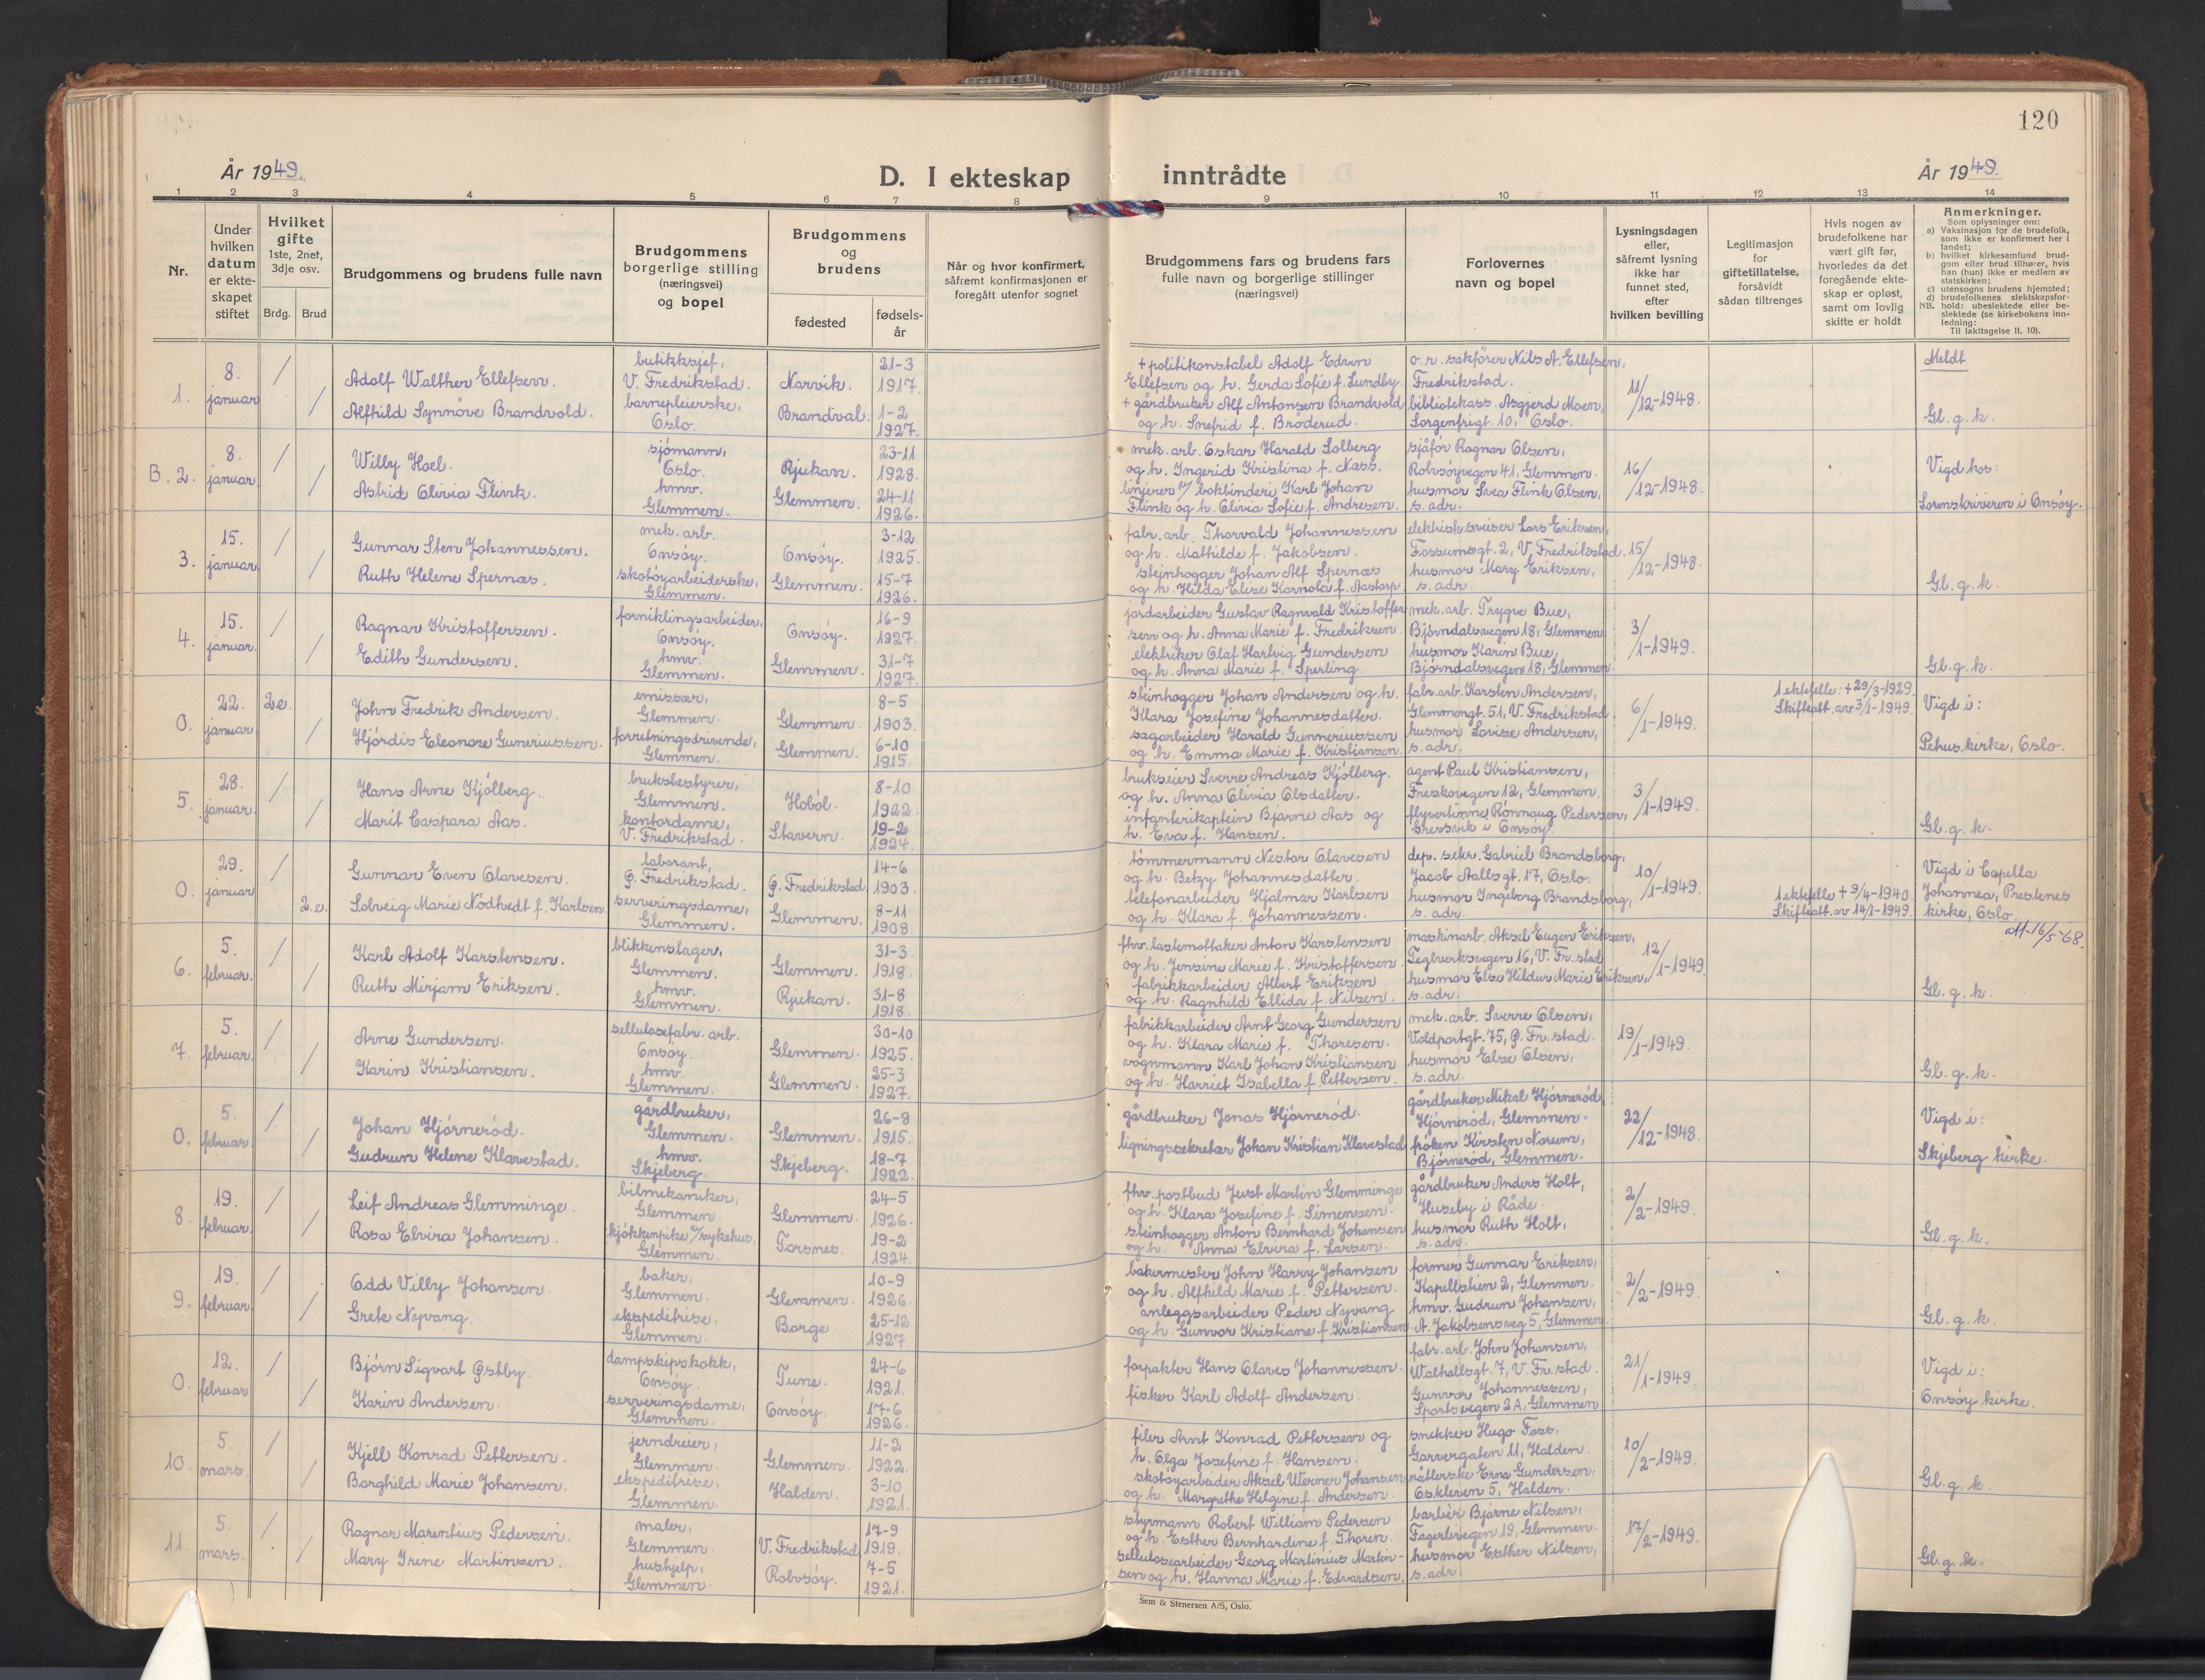 120
År 1949.
D. I ekteskap inntrådte
År 1949.
1 2 3 4 5 6 7 8 9 10 11 12 13 14
Nr.
Under hvilken datum er ekteskapet stiftet
Hvilket gifte 1ste, 2net, 3dje osv.
Brdg. Brud
Brudgommens og brudens fulle navn
Brudgommens borgerlige stilling (næringsvei) og bopel
Brudgommens og brudens
fødested
fødselsår
Når og hvor konfirmert, såfremt konfirmasjonen er foregått utenfor sognet
Brudgommens fars og brudens fars fulle navn og borgerlige stillinger (næringsvei)
Forlovernes navn og bopel
Lysningsdagen eller, såfremt lysning ikke har funnet sted, efter hvilken bevilling
Legitimasjon for giftetillatelse, forsåvidt sådan tiltrenges
Hvis nogen av brudefolkene har vært gift før, hvorledes da det foregående ekteskap er opløst, samt om lovlig skifte er holdt
Anmerkninger.
Som oplysninger om:
a) Vaksinasjon for de brudefolk, som ikke er konfirmert her i landet;
b) hvilket kirkesamfund brudgom eller brud tilhører, hvis han (hun) ikke er medlem av statskirken;
c) utensogns brudens hjemsted;
d) brudefolkenes slektskapsforhold: ubeslektede eller beslektede (se kirkebokens innledning:
NB. Til iakttagelse II, 10).
1. 8. januar / /
Adolf Walther Ellefsen.
Alfhild Synnöve Brandvold.
butikksjef, V. Fredrikstad.
barnepleierske, Oslo.
Narvik. 21-3 1917.
Brandval. 1-2 1927.
+ politikonstabel Adolf Edvin
Ellefsen og h. Gerda Sofie f. Lundby.
+ gårdbruker Alf Antonsen Brandvold
og h. Snefrid f. Bröderud.
o.r. sakförer Nils A. Ellefsen,
Fredrikstad.
bibliotekass. Asgjerd Moen,
Sorgenfrigt. 10, Oslo.
11/12-1948.
Meldt
Gl. g. k.
B. 2. 8. januar / /
Willy Hoel.
Astrid Olivia Flink.
sjömann, Oslo.
hmv. Glemmen.
Rjukan. 23-11 1928.
Glemmen. 24-11 1926.
mek. arb. Oskar Harald Solberg
og h. Ingerid Kristina f. Næss.
linjerer v/ bokbinderi Karl Johan
Flink og h. Olivia Sofie f. Andresen.
sjåför Ragnar Olsen,
Rolvsöyvegen 41, Glemmen.
husmor Svea Flink Olsen,
s. adr.
16/12-1948.
Vigd hos:
Sorenskriveren i Onsöy.
3. 15. januar. / /
Gunnar Sten Johannessen.
Ruth Helene Spernæs.
mek. arb. Onsöy.
skotöyarbeiderske, Glemmen.
Onsöy. 3-12 1925.
Glemmen. 15-7 1926.
fabr. arb. Thorvald Johannessen
og h. Mathilde f. Jakobsen.
steinhogger Johan Alf Spernæs
og h. Hilda Elise Karnola f. Aastorp
elektrisk sveiser Lars Eriksen,
Fossumsgt. 2, V. Fredrikstad.
husmor Mary Eriksen,
s. adr.
15/12-1948.
Gl. g. k.
4. 15. januar. / /
Ragnar Kristoffersen.
Edith Gundersen.
forniklingsarbeider, Onsöy.
hmv. Glemmen.
Onsöy. 16-9 1927.
Glemmen. 31-7 1927.
jordarbeider Gustav Ragnvald Kristoffer
sen og h. Anna Marie f. Fredriksen.
elektriker Olaf Hartvig Gundersen
og h. Anna Marie f. Sperling.
mek. arb. Trygve Bue,
Bjørndalsvegen 18, Glemmen.
husmor Karin Bue,
Bjørndalsvegen 18, Glemmen.
3/1-1949.
Gl. g. k.
0. 22. januar. 2.e. /
John Fredrik Andersen.
Hjördis Eleonore Guneriussen.
emissær, Glemmen.
forretningsdrivende, Glemmen.
Glemmen. 8-5 1903.
Glemmen. 6-10 1915.
steinhogger Johan Andersen og h.
Klara Josefine Johannesdatter.
sagarbeider Harald Gunneriussen
og h. Emma Marie f. Kristiansen.
fabr. arb. Karsten Andersen,
Glemmengt. 51, V. Fredrikstad.
husmor Lovise Andersen,
s. adr.
6/1-1949.
1 ektefelle: + 29/3-1929.
Skifteatt. av 3/1-1949.
Vigd i:
Pehuskirke, Oslo.
5. 28. januar. / /
Hans Arne Kjölberg.
Marit Caspara Aas.
bruksbestyrer, Glemmen.
kontordame, V. Fredrikstad.
Hoböl. 8-10 1922.
Stavern. 19-2 1924.
brukseier Sverre Andreas Kjölberg.
og h. Anna Olivia Olsdatter.
infanterikaptein Bjarne Aas og
h. Eva f. Hansen.
agent Paul Kristiansen,
Freskovegen 12, Glemmen.
flyvertinne Rönnaug Pedersen,
Gressvik i Onsöy.
3/1-1949.
Gl. g. k.
0. 29. januar / 2.e.
Gunnar Even Olavesen.
Solveig Marie Nödtvedt f. Karlsen.
laborant, Ø. Fredrikstad.
serveringsdame, Glemmen.
Ø. Fredrikstad 14-6 1903.
Glemmen. 8-11 1908.
tömmermann Nestor Olavesen
og h. Betzy Johannesdatter.
telefonarbeider Hjalmar Karlsen
og h. Klara f. Johannessen.
dep. sekr. Gabriel Brandsborg,
Jacob Aallsgt. 17, Oslo.
husmor Ingeborg Brandsborg,
s. adr.
10/1-1949.
1 ektefelle + 9/4-1940.
Skifteatt. av 14/1-1949.
Vigd i Capella
Johannea, Prestenes
kirke, Oslo.
M-16/5-68.
6. 5. februar. / /
Karl Adolf Karstensen.
Ruth Mirjam Eriksen.
blikkenslager, Glemmen.
hmv. Glemmen.
Glemmen. 31-3 1918.
Rjukan. 31-8 1918.
fhv. lastemottaker Anton Karstensen
og h. Jensine Marie f. Kristoffersen.
fabrikkarbeider Albert Eriksen
og h. Ragnhild Ellida f. Nilsen.
maskinarb. Aksel Eugen Eriksen,
Teglverksvegen 16, V. Fr.stad
husmor Else Hildur Marie Eriksen,
s. adr.
12/1-1949.
Gl. g. k.
7. 5. februar. / /
Arne Gundersen.
Karin Kristiansen.
sellulosefabr. arb. Onsöy.
hmv. Glemmen.
Glemmen. 30-10 1925.
Glemmen. 25-3 1927.
fabrikkarbeider Arnt Georg Gundersen
og h. Klara Marie f. Thoresen.
vognmann Karl Johan Kristiansen
og h. Harriet Isabella f. Pettersen.
mek. arb. Sverre Olsen,
Voldportgt. 75, Ø. Fr.stad.
husmor Else Olsen,
s. adr.
19/1-1949.
Gl. g. k.
0. 5. februar. / /
Johan Hjörneröd.
Gudrun Helene Klavestad.
gårdbruker, Glemmen.
hmv. Skjeberg.
Glemmen. 26-8 1915.
Skjeberg. 18-7 1922.
gårdbruker Jonas Hjörneröd.
ligningssekretær Johan Kristian Klavestad
gårdbruker Mikal Hjörneröd,
Hjörneröd, Glemmen.
fröken Kirsten Norum,
Bjørneröd, Glemmen.
22/12-1948.
Vigd i:
Skjeberg kirke.
8. 19. februar. / /
Leif Andreas Glemminge.
Rosa Elvira Johansen.
bilmekaniker, Glemmen.
kjökkenpike v/sykehus, Glemmen.
Glemmen. 24-5 1926.
Torsnes. 19-2 1924.
fhv. postbud Just Martin Glemminge
og h. Klara Josefine f. Simensen.
steinhogger Anton Bernhard Johansen
og h. Anna Elvira f. Larsen.
gårdbruker Anders Holt,
Huseby i Råde.
husmor Ruth Holt,
s. adr.
2/2-1949.
Gl. g. k.
9. 19. februar. / /
Odd Villy Johansen.
Grete Nyvang.
baker, Glemmen.
ekspeditrise, Glemmen.
Glemmen. 10-9 1926.
Borge. 25-12 1927.
bakermester John Harry Johansen
og h. Alfhild Marie f. Pettersen.
anleggsarbeider Peder Nyvang
og h. Gunvor Kristiane f. Kristiansen.
former Gunnar Eriksen,
Kapellstien 2, Glemmen.
hmv. Gudrun Johansen,
A. Jakobsensveg 5, Glemmen.
2/2-1949.
Gl. g. k.
0. 12. februar /
Björn Sigvart Østby.
Karin Andersen.
dampskipskokk, Onsöy.
serveringsdame, Glemmen.
Tune. 24-6 1921.
Onsöy. 17-6 1926.
forpakter Hans Olaves Johannessen.
fisker Karl Adolf Andersen.
fabr. arb. John Johansen,
Walhallsgt. 7, V. Fr.stad.
Gunvor Johannessen,
Sportsvegen 2A, Glemmen
21/1-1949.
Vigd i:
Onsöy kirke.
10. 5. mars. / /
Kjell Konrad Pettersen.
Borghild Marie Johansen.
jerndreier, Glemmen.
ekspeditrise, Glemmen.
Glemmen. 11-2 1922.
Halden. 3-10 1921.
filer Arnt Konrad Pettersen og
h. Olga Josefine f. Hansen.
skotöyarbeider Aksel Werner Johansen
og h. Margrethe Helgine f. Andersen.
snekker Hugo Foss,
Garvergaten 11, Halden.
nåtlerske Erna Gundersen,
Oskleven 5, Halden.
10/2-1949.
Gl. g. k.
11. 5. mars. / /
Ragnar Marentius Pedersen.
Mary Irene Martinsen.
maler, Glemmen.
hushjelp, Glemmen.
V. Fredrikstad 17-9 1919.
Rolvsöy. 7-5 1921.
styrmann Robert William Pedersen
og h. Esther Bernhardine f. Thoren.
sellulosearbeider Georg Martinius Martin-
sen og h. Hanna Marie f. Edvardsen.
barbér Bjarne Nilsen,
Fagerlivegen 19, Glemmen.
husmor Esther Nilsen,
s. adr.
17/2-1949.
Gl. g. k.
Sem & Stenersen A/S, Oslo.